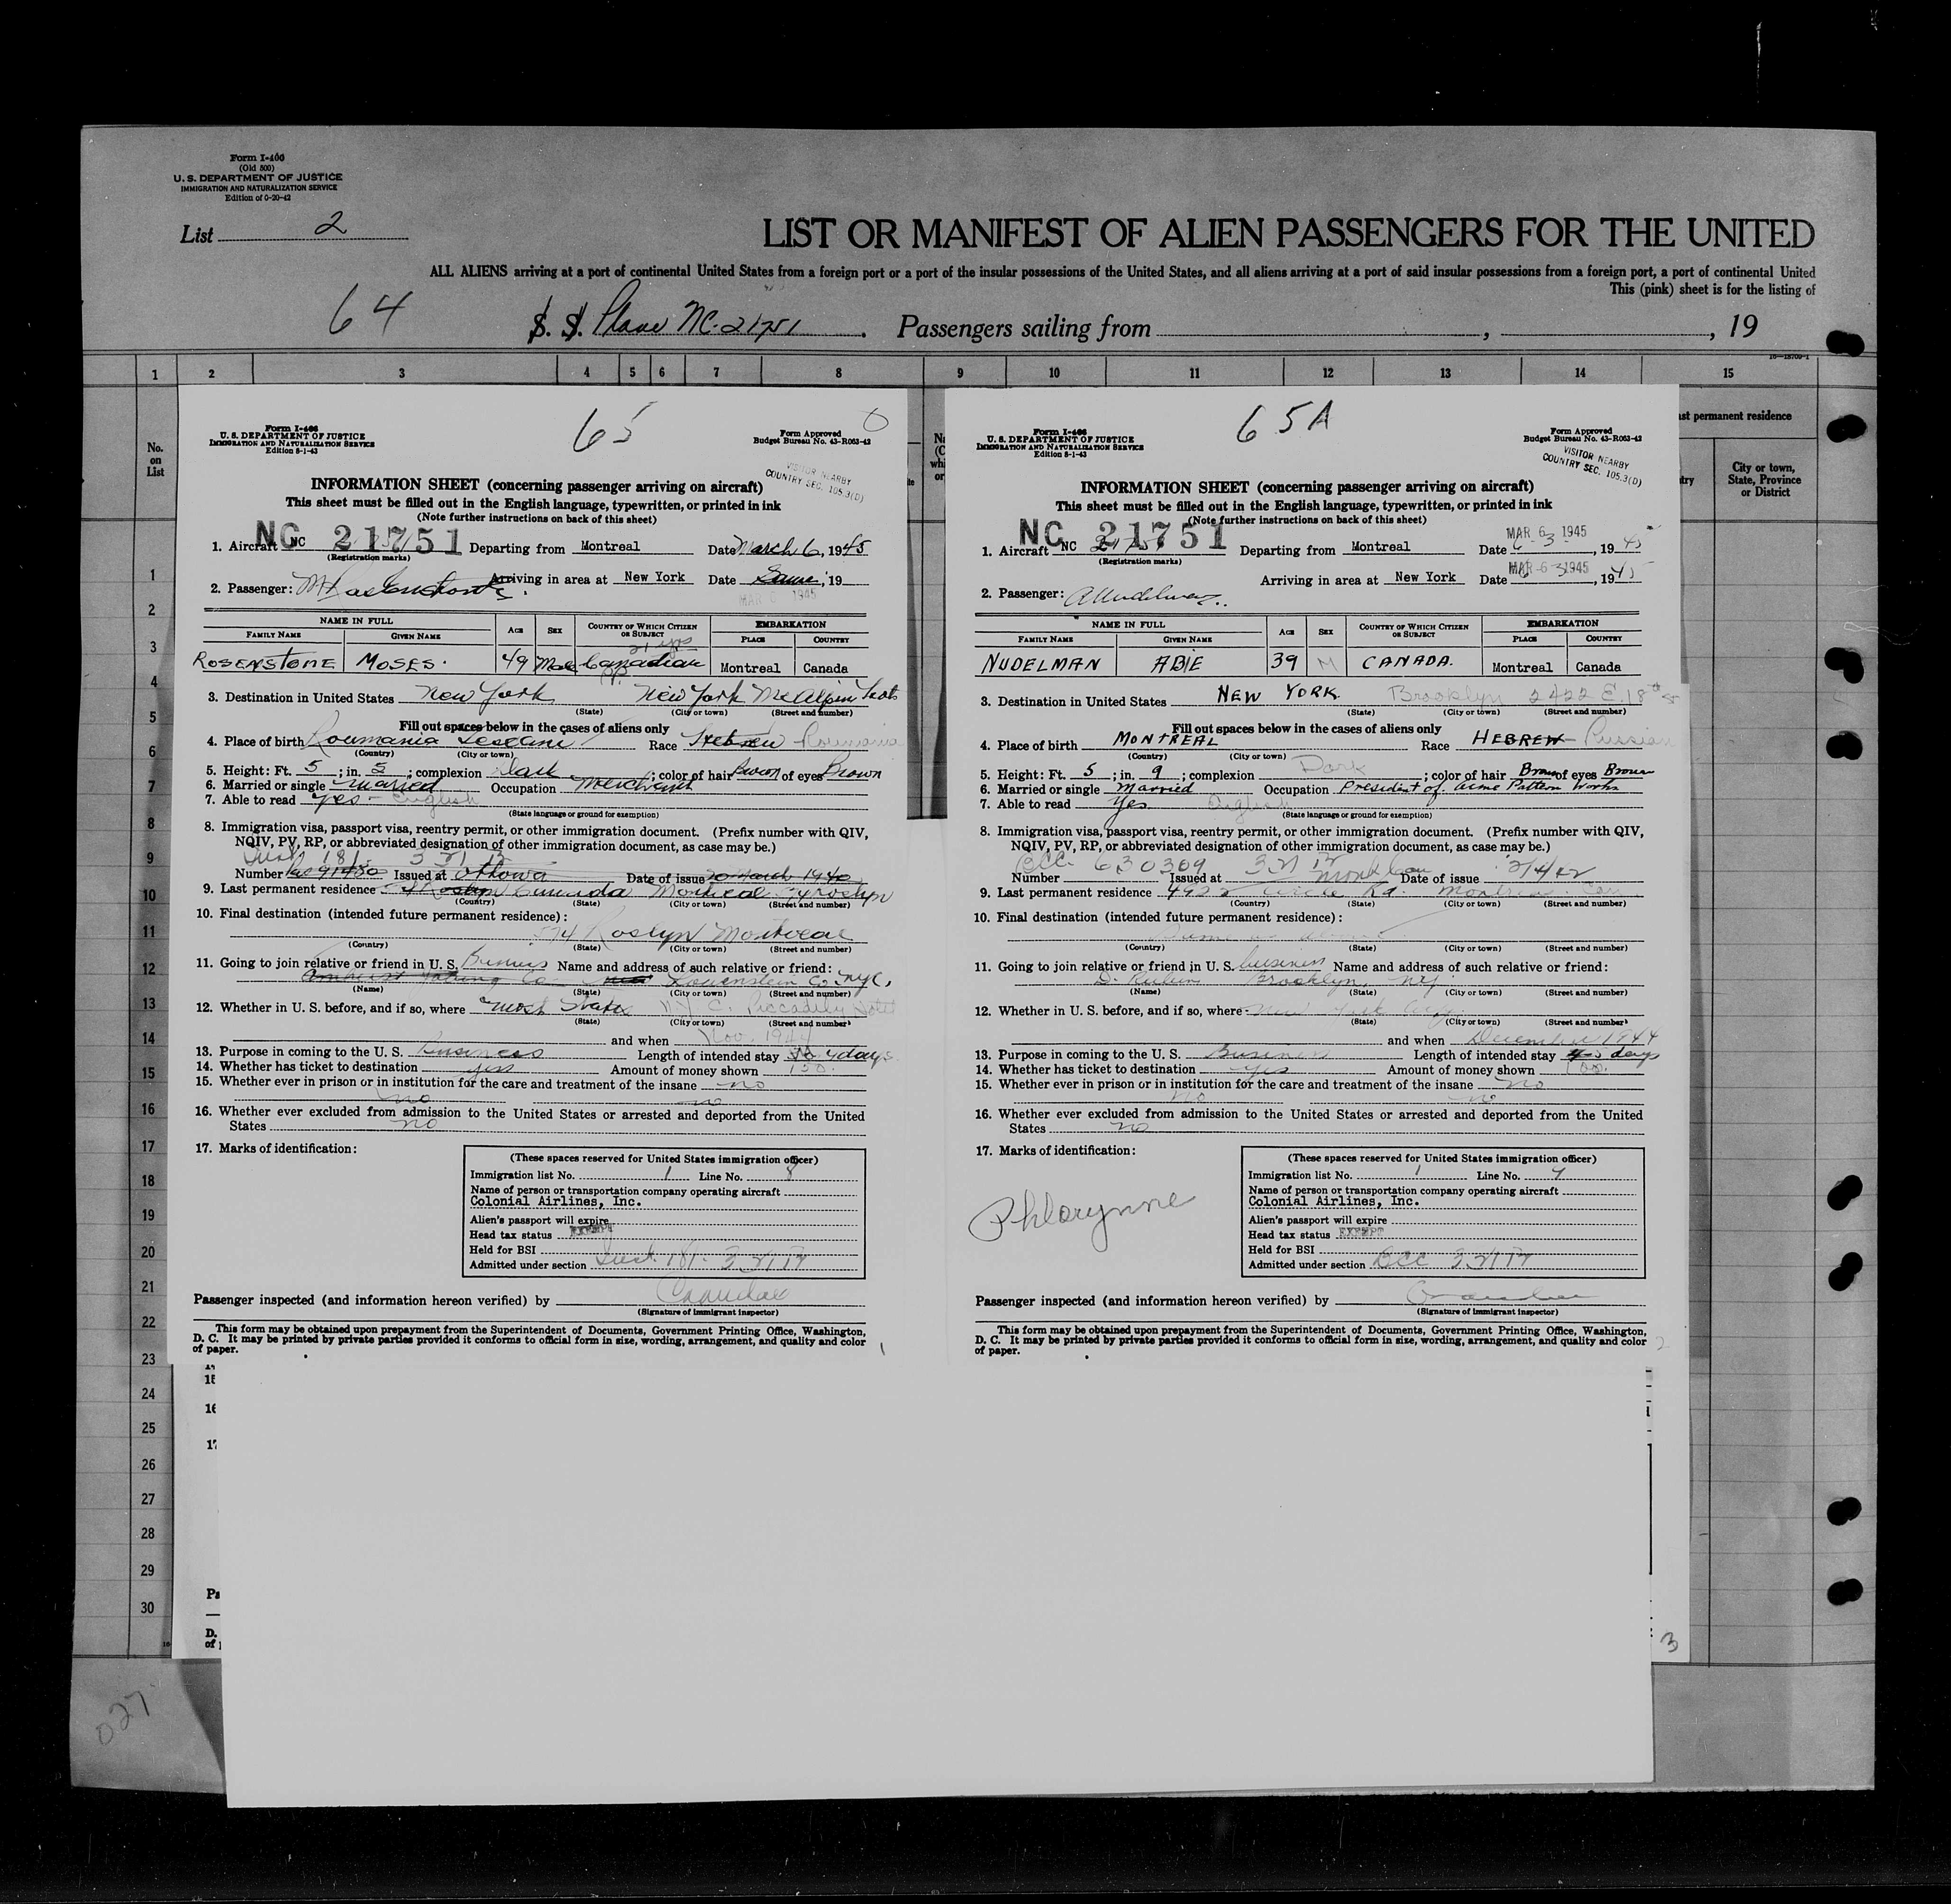 Form I-400
(Old 500)
U. S. DEPARTMENT OF JUSTICE
IMMIGRATION AND NATURALIZATION SERVICE
Edition of 6-20-42
List 2
LIST OR MANIFEST OF ALIEN PASSENGERS FOR THE UNITED
ALL ALIENS arriving at a port of continental United States from a foreign port or a port of the insular possessions of the United States, and all aliens arriving at a port of said insular possessions from a foreign port, a port of continental United
This (pink) sheet is for the listing of
64
S. S. Plane NC-21751 . Passengers sailing from , , 19
1 2 3 4 5 6 7 8 9 10 11 12 13 14 15
No. on List
st permanent residence
City or town, State, Province or District
65
Form I-466
U. S. DEPARTMENT OF JUSTICE
IMMIGRATION AND NATURALIZATION SERVICE
Edition 8-1-43
Form Approved
Budget Bureau No. 43-R063-42
VISITOR NEARBY
COUNTRY SEC. 105.3(D)
INFORMATION SHEET (concerning passenger arriving on aircraft)
This sheet must be filled out in the English language, typewritten, or printed in ink
(Note further instructions on back of this sheet)
NC 21751
1. Aircraft NC Departing from Montreal Date March 6, 1945
(Registration marks)
Arriving in area at New York Date Same, 19
MAR 6 1945
2. Passenger:
NAME IN FULL AGE SEX COUNTRY OF WHICH CITIZEN OR SUBJECT EMBARKATION
FAMILY NAME GIVEN NAME PLACE COUNTRY
21 yrs
ROSENSTONE MOSES. 49 Male Canadian Montreal Canada
3. Destination in United States New York New York McAlpin
(State) (City or town) (Street and number)
Fill out spaces below in the cases of aliens only
4. Place of birth Roumania Race Hebrew Roumania
(Country) (City or town)
5. Height: Ft. 5 ; in. 5 ; complexion Dark ; color of hair Brown of eyes Brown
6. Married or single married Occupation Merchant
7. Able to read yes - English
(State language or ground for exemption)
8. Immigration visa, passport visa, reentry permit, or other immigration document. (Prefix number with QIV,
NQIV, PV, RP, or abbreviated designation of other immigration document, as case may be.)
Number Issued at Ottowa Date of issue 20 March 1940
9. Last permanent residence Canada Montreal Roslyn
(Country) (State) (City or town) (Street and number)
10. Final destination (intended future permanent residence):
574 Roslyn Montreal
(Country) (State) (City or town) (Street and number)
11. Going to join relative or friend in U. S. Business Name and address of such relative or friend:
Lowenstein Co NYC.
(Name) (State) (City or town) (Street and number)
12. Whether in U. S. before, and if so, where most States N.Y.C. Piccadily Hotel
(State) (City or town) (Street and number)
and when Nov. 1944
13. Purpose in coming to the U. S. Business Length of intended stay 4 days
14. Whether has ticket to destination yes Amount of money shown 150.
15. Whether ever in prison or in institution for the care and treatment of the insane no
no no
16. Whether ever excluded from admission to the United States or arrested and deported from the United
States no
17. Marks of identification:
(These spaces reserved for United States immigration officer)
Immigration list No. 1 Line No. 8
Name of person or transportation company operating aircraft
Colonial Airlines, Inc.
Alien's passport will expire
Head tax status EXEMPT
Held for BSI
Admitted under section
Passenger inspected (and information hereon verified) by
(Signature of immigrant inspector)
This form may be obtained upon prepayment from the Superintendent of Documents, Government Printing Office, Washington,
D. C. It may be printed by private parties provided it conforms to official form in size, wording, arrangement, and quality and color
of paper.
65A
Form I-466
U. S. DEPARTMENT OF JUSTICE
IMMIGRATION AND NATURALIZATION SERVICE
Edition 8-1-43
Form Approved
Budget Bureau No. 43-R063-42
VISITOR NEARBY
COUNTRY SEC. 105.3(D)
INFORMATION SHEET (concerning passenger arriving on aircraft)
This sheet must be filled out in the English language, typewritten, or printed in ink
(Note further instructions on back of this sheet)
NC 21751
MAR 6 1945
1. Aircraft NC Departing from Montreal Date 6-3 , 1945
(Registration marks)
MAR 6 1945
Arriving in area at New York Date 6 3 , 1945
2. Passenger: A Nudelman.
NAME IN FULL AGE SEX COUNTRY OF WHICH CITIZEN OR SUBJECT EMBARKATION
FAMILY NAME GIVEN NAME PLACE COUNTRY
NUDELMAN ABIE 39 M CANADA. Montreal Canada
3. Destination in United States NEW YORK. Brooklyn 2422 E. 18th St
(State) (City or town) (Street and number)
Fill out spaces below in the cases of aliens only
4. Place of birth MONTREAL Race HEBREW Russian
(Country) (City or town)
5. Height: Ft. 5 ; in. 9 ; complexion Dark ; color of hair Brown of eyes Brown
6. Married or single married Occupation President of. Acme Pattern Works
7. Able to read Yes. English
(State language or ground for exemption)
8. Immigration visa, passport visa, reentry permit, or other immigration document. (Prefix number with QIV,
NQIV, PV, RP, or abbreviated designation of other immigration document, as case may be.)
BCC. 630309
Number Issued at Montreal Date of issue 2/4/42
9. Last permanent residence 4922 Circle Rd. Montreal Can
(Country) (State) (City or town) (Street and number)
10. Final destination (intended future permanent residence):
Same as above
(Country) (State) (City or town) (Street and number)
11. Going to join relative or friend in U. S. business Name and address of such relative or friend:
D. Rubin Brooklyn, NY
(Name) (State) (City or town) (Street and number)
12. Whether in U. S. before, and if so, where New York City
(State) (City or town) (Street and number)
and when December 1944
13. Purpose in coming to the U. S. Business Length of intended stay 5 days
14. Whether has ticket to destination Yes Amount of money shown 100.
15. Whether ever in prison or in institution for the care and treatment of the insane no
no no
16. Whether ever excluded from admission to the United States or arrested and deported from the United
States no
17. Marks of identification:
(These spaces reserved for United States immigration officer)
Immigration list No. 1 Line No. 7
Name of person or transportation company operating aircraft
Colonial Airlines, Inc.
Alien's passport will expire
Head tax status EXEMPT
Held for BSI
Admitted under section BCC
Phlorynne
Passenger inspected (and information hereon verified) by
(Signature of immigrant inspector)
This form may be obtained upon prepayment from the Superintendent of Documents, Government Printing Office, Washington,
D. C. It may be printed by private parties provided it conforms to official form in size, wording, arrangement, and quality and color
of paper.
1
2
3
4
5
6
7
8
9
10
11
12
13
14
15
16
17
18
19
20
21
22
23
24
25
26
27
28
29
30
3
027